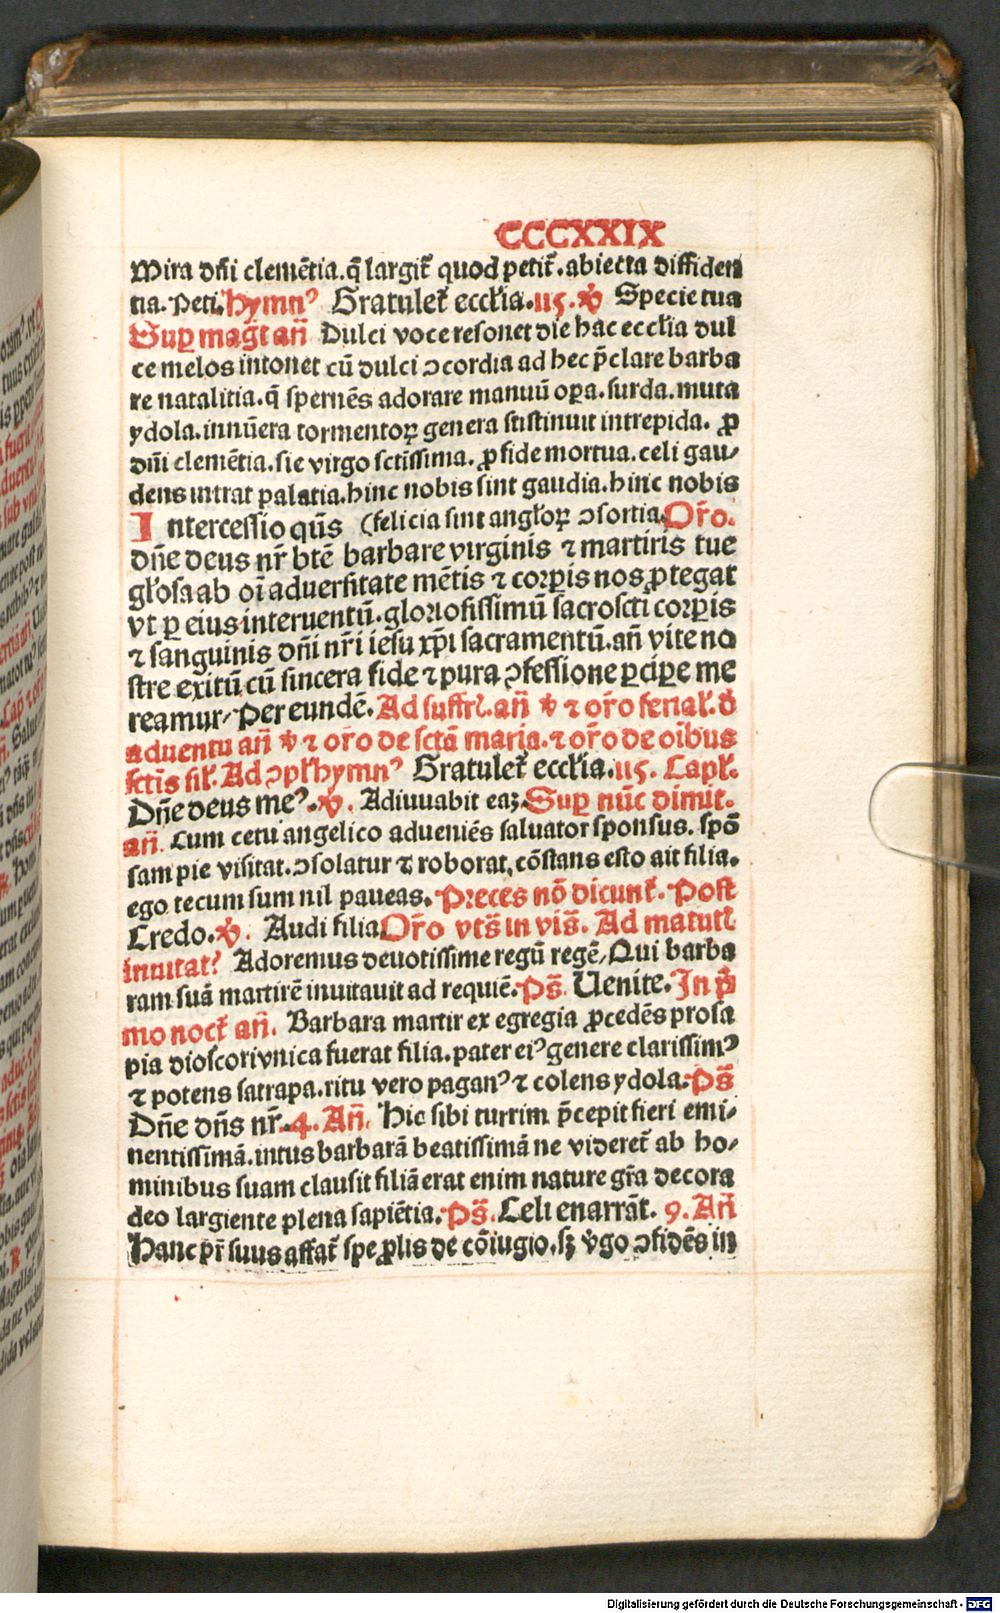 CCCXXIX
Mira dñi clemētia. q̄ largit᷑ quod petit᷑. abiecta diffiden
tia. Peti. Hymnꝰ Gratulet᷑ eccl'ia. 115. ꝟ Specie tua
Suꝑ mag̅t an̄ Dulci voce resonet die hac eccl'ia dul
ce melos intonet cū dulci ↄcordia ad hec p̄clare barba
re natalitia. q̄ spernēs adorare manuū oꝑa. surda. muta
ydola. innūera tormentoꝝ genera sustinuit intrepida. ꝓ
dn̄i clemētia. sic virgo sctissima. ꝓ fide mortua. celi gau⸗
dens intrat palatia. hinc nobis sint gaudia. hinc nobis
Intercessio qūs (felicia sint angl'oꝝ ↄsortia. Or̄o.
dn̄e deus nr̄ btē barbare virginis ⁊ martiris tue
gl'osa ab oī aduersitate mētis ⁊ corꝑis nos ꝓtegat
vt ꝑ eius interuentū. gloriosissimū sacroscti corꝑis
⁊ sanguinis dn̄i nr̄i iesu xp̄i sacramentū. an̄ vite no
stre exitū cū sincera fide ⁊ pura ↄfessione ꝑciꝑe me
reamur, Per eundē. Ad suffrl'. an̄ ꝟ ⁊ or̄o ferial'. d̄
aduentu an̄ ꝟ ⁊ or̄o de sctā maria. ⁊ or̄o de oībus
sctīs sil'. Ad ↄpl' hymnꝰ Gratulet᷑ eccl'ia. 115. Capl'.
Dn̄e deus meꝰ. ꝟ. Adiuuabit eaꝫ. Suꝑ nūc dimit.
an̄. Cum cetu angelico adueniēs saluator sponsus. spō
sam pie visitat. ↄsolatur ⁊ roborat, cōstans esto ait filia.
ego tecum sum nil paueas. Preces nō dicunt᷑. Post
Credo. ꝟ. Audi filia. Or̄o vts̄ in vis̄. Ad matutl'
inuitat? Adoremus deuotissime regū regē, Qui barba
ram suā martirē inuitauit ad requiē. Ps̄. Uenite. In p̄
mo noct᷑ an̄. Barbara martir ex egregia ꝓcedēs prosa
pia dioscori vnica fuerat filia. pater eiꝰ genere clarissimꝰ
⁊ potens satrapa. ritu vero paganꝰ ⁊ colens ydola. Ps̄
Dn̄e dn̄s nr̄. 4. An̄. Hic sibi turrim p̄cepit fieri emi⸗
nentissimā. intus barbarā beatissimā ne videret᷑ ab ho⸗
minibus suam clausit filiā erat enim nature gr̄a decora
deo largiente plena sapiētia. Ps̄. Celi enarrāt. 9. An̄
Hanc pr̄ suus affat᷑ spe ꝓlis de cōiugio. sꝫ v̄go ↄfidēs in
Digitalisierung gefördert durch die Deutsche Forschungsgemeinschaft - DFG